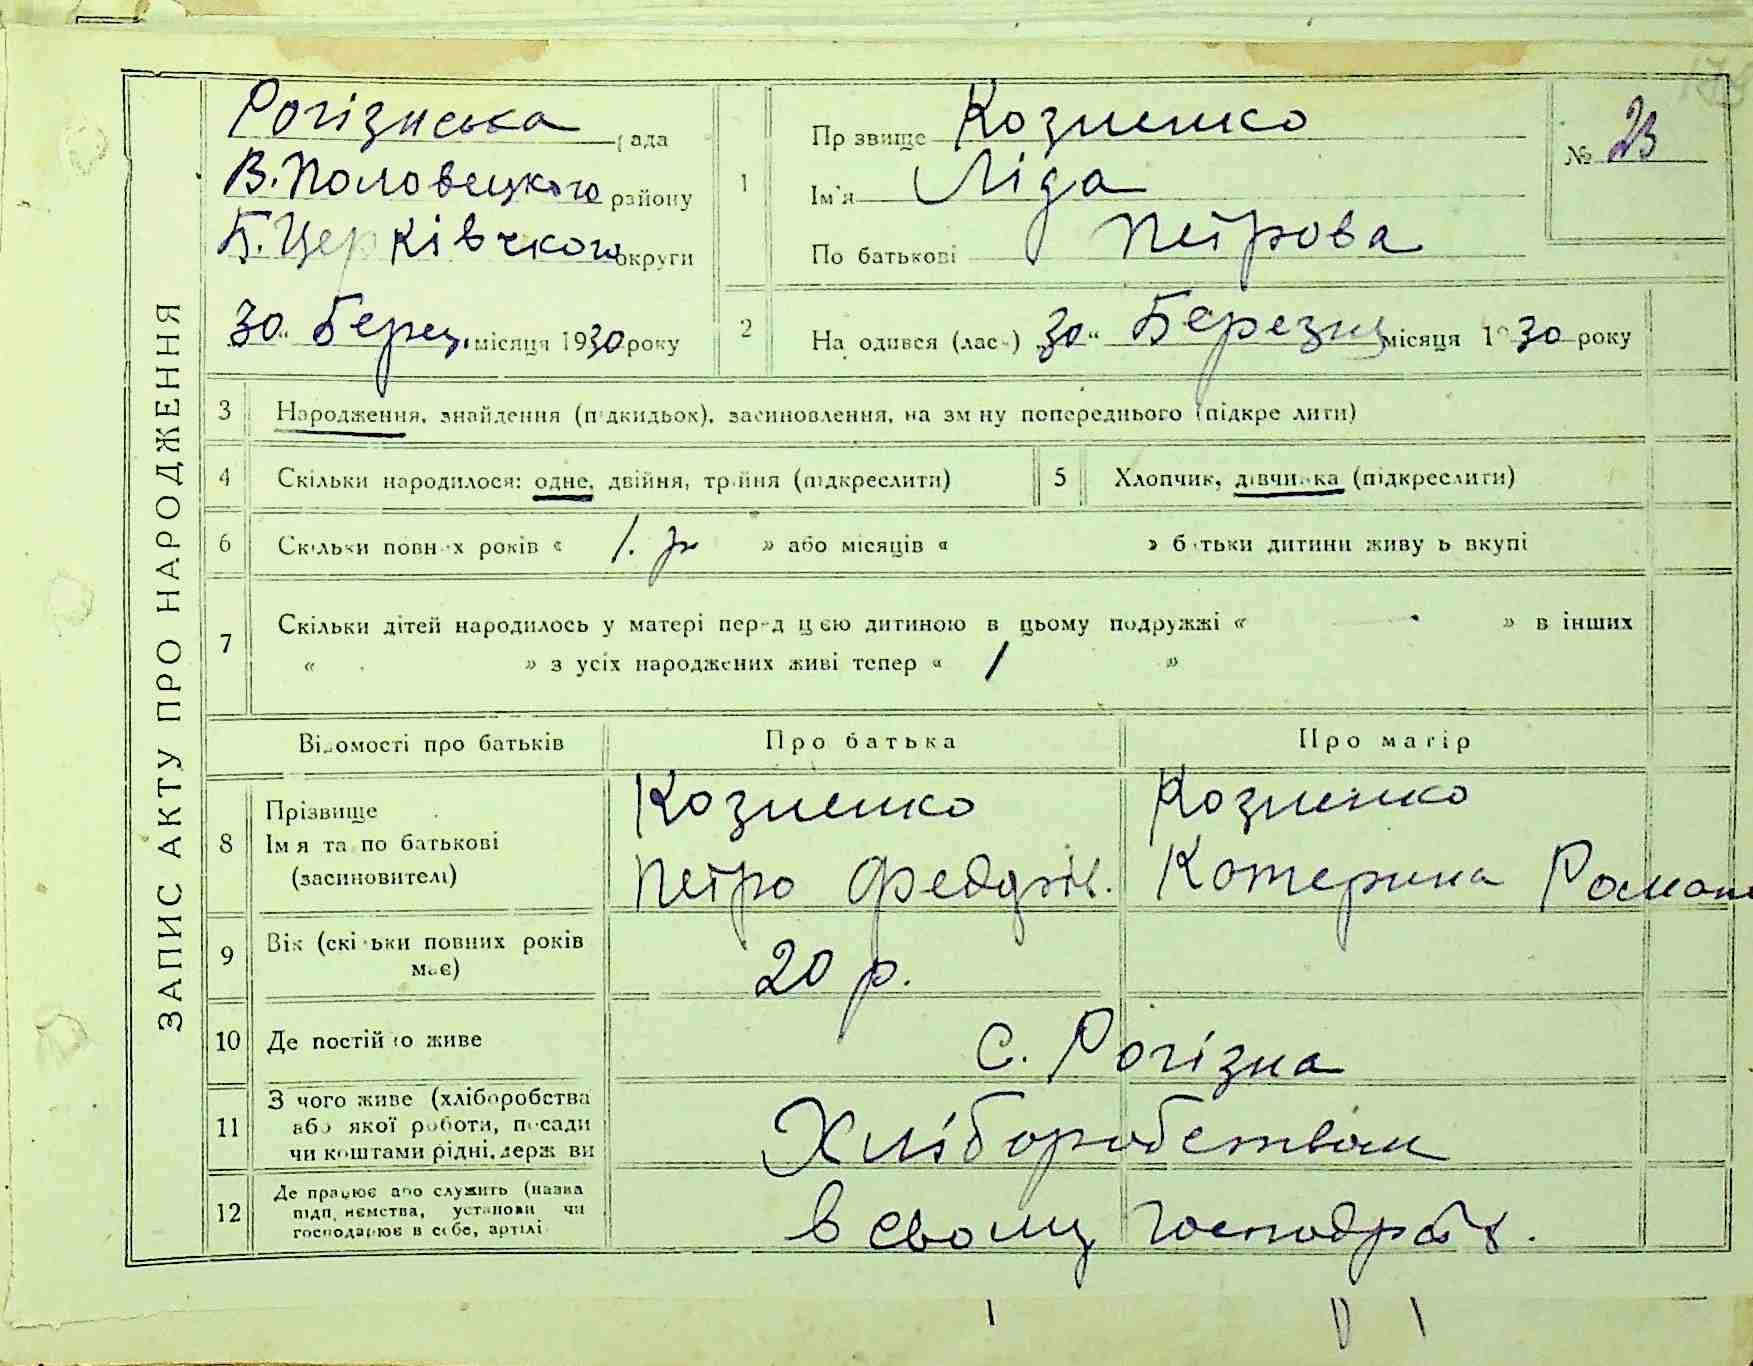 ЗАПИС АКТУ ПРО НАРОДЖЕННЯ
Рогізнська рада
В.Половецького району
Б.Церківського округи
30 " Берец. місяця 1930 року
1
Прізвище Козиенко
Ім'я Ліда
По батькові Петрова
№ 23
2
Народився (лась) "30" Березня місяця 1930 року
3 Народження, знайдення (підкидьок), засиновлення, на зміну попереднього (підкреслити)
4 Скільки народилося: одне, двійня, трійня (підкреслити)
5 Хлопчик, дівчинка (підкреслити)
6 Скільки повних років « 1. р » або місяців « » батьки дитини живуть вкупі
7 Скільки дітей народилось у матері перед цією дитиною в цьому подружжі « — » в інших
« » з усіх народжених живі тепер « 1 »
Відомості про батьків Про батька Про матір
8 Прізвище
Ім я та по батькові
(засиновителі)
Козиенко
Петро Федорів.
Козиенко
Катерина Роман
9 Вік (скільки повних років
має)
20 р.
10 Де постійно живе
с. Рогізна
11 З чого живе (хліборобства
або якої роботи, посади
чи коштами рідні, держави
Хліборобством
12 Де працює або служить (назва
підприємства, установи чи
господарює в себе, артілі
в свому господрстві.